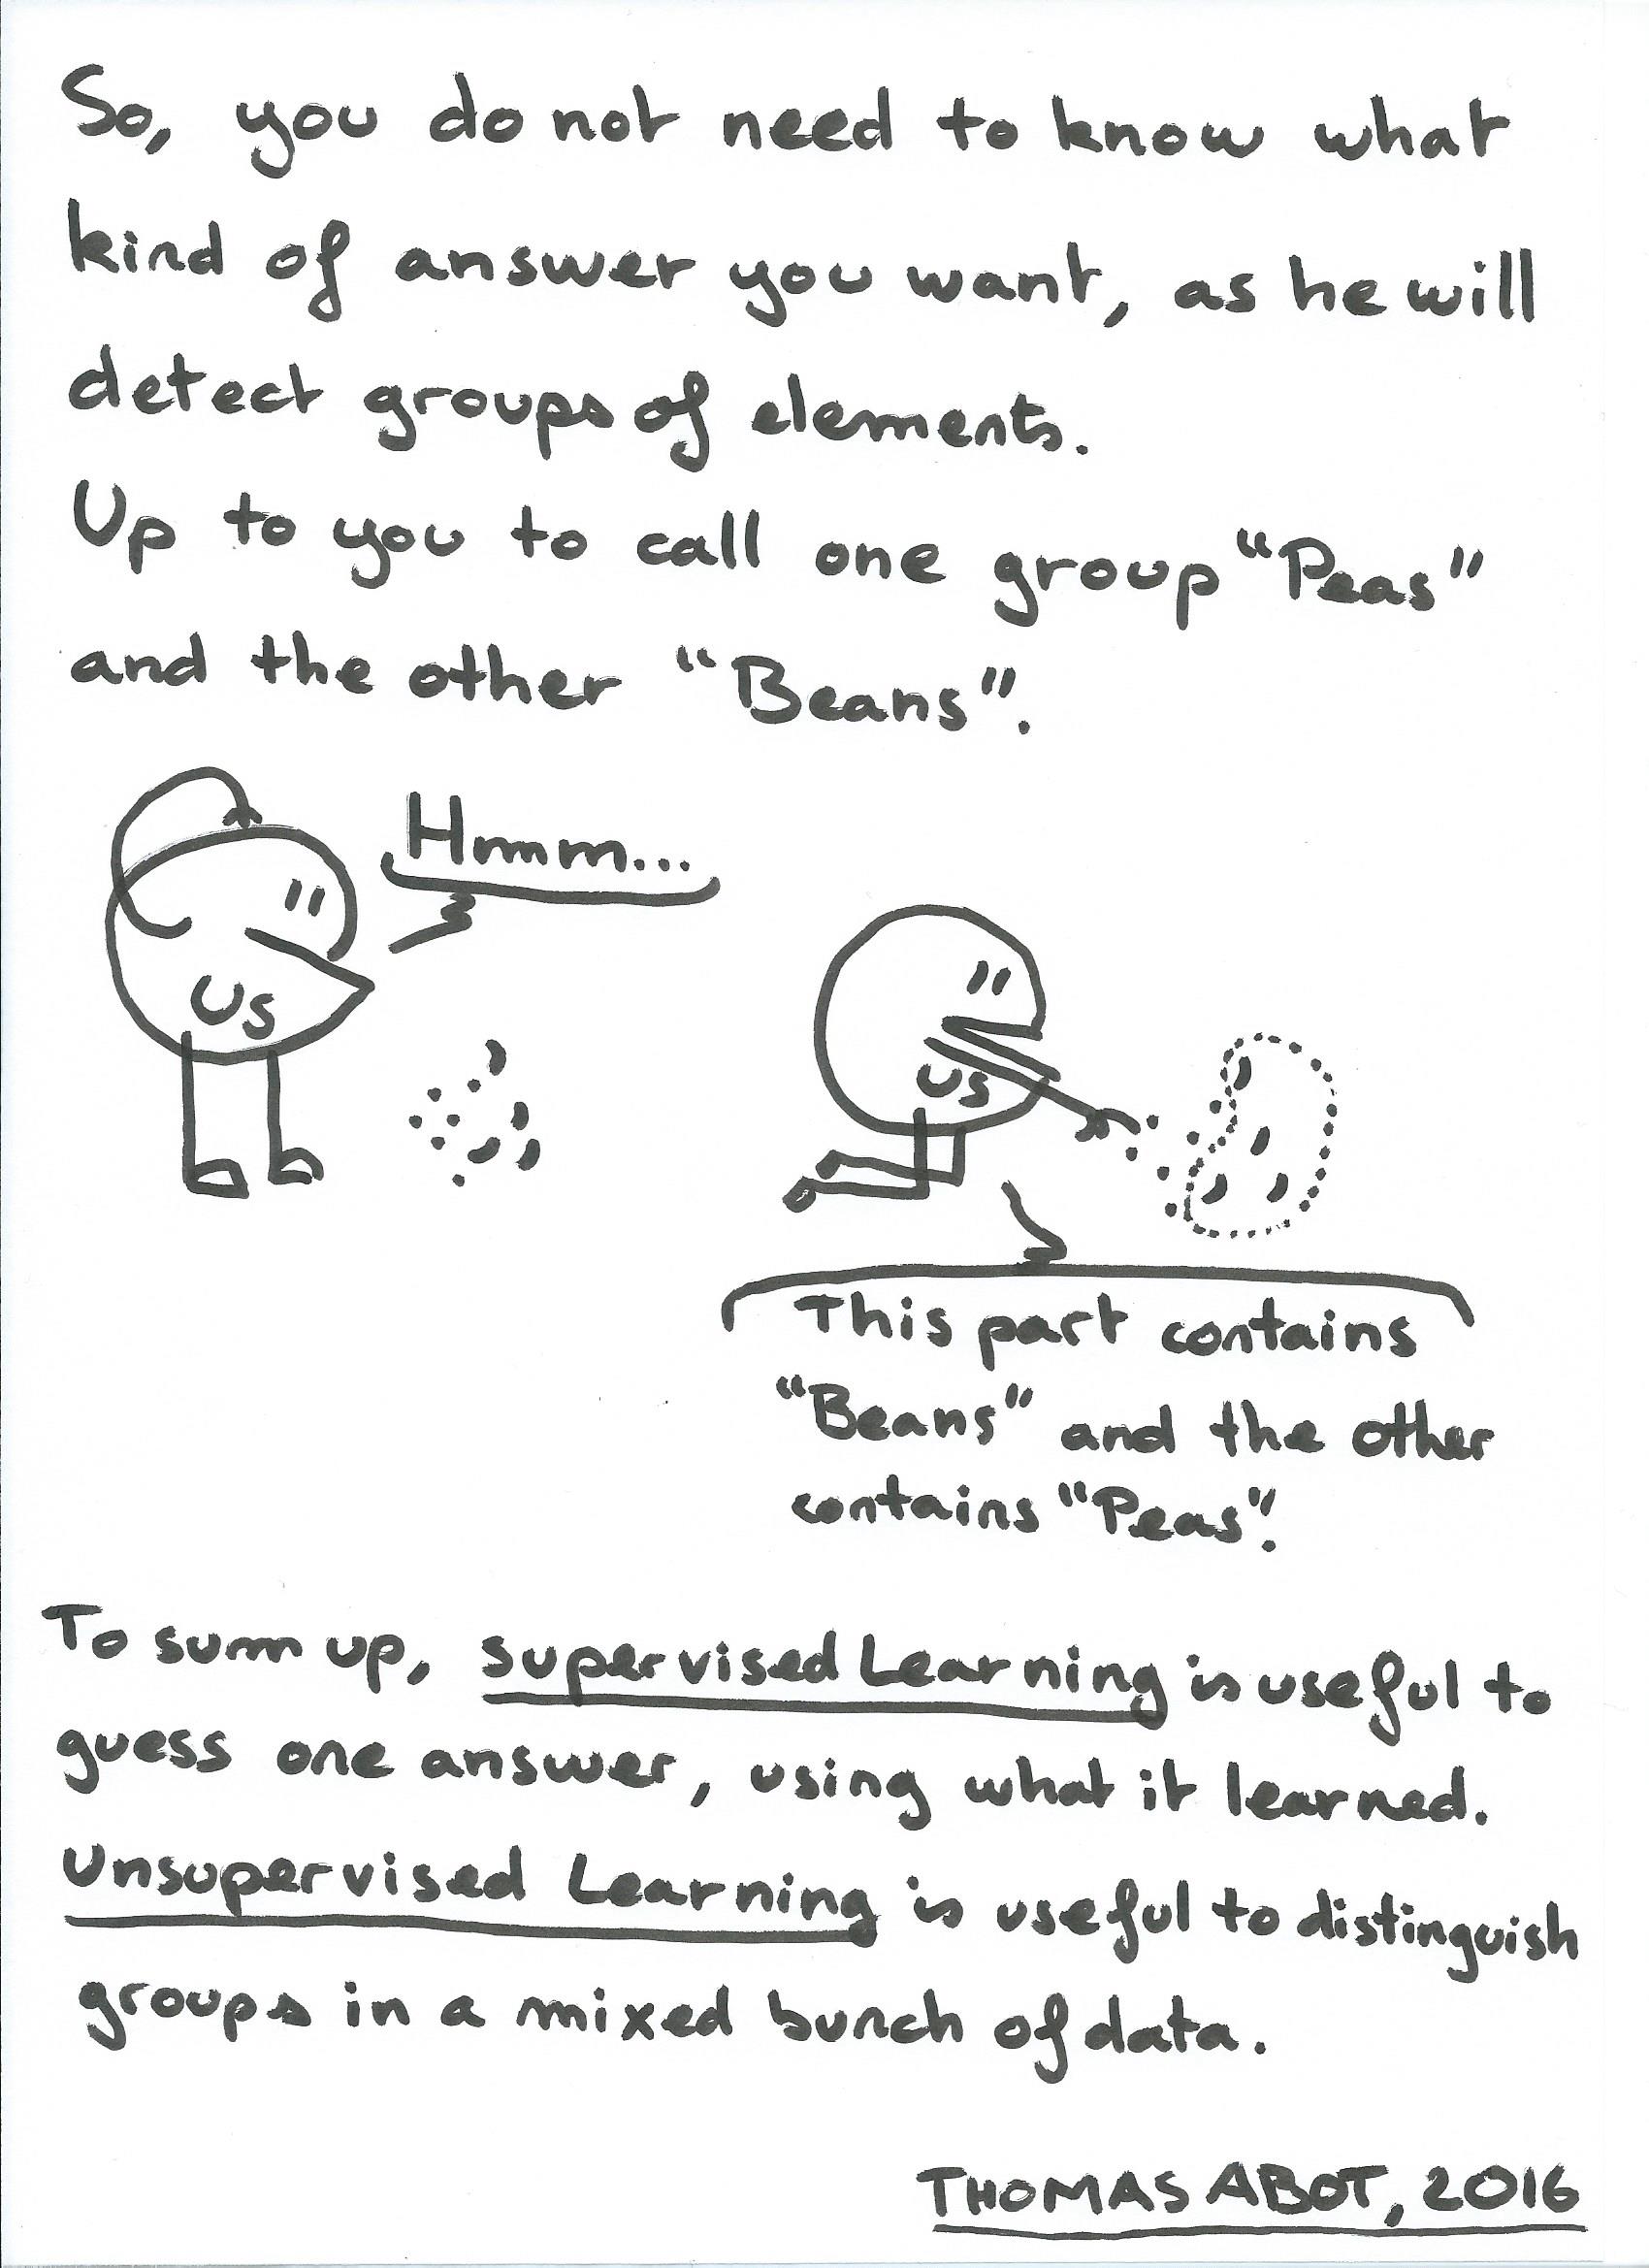 So, you do not need to know what
kind of answer you want, as he will
detect groups of elements.
Up to you to call one group "Peas"
and the other "Beans".
Hmmm...
Us
Us
This part contains
"Beans" and the other
contains "Peas".
To sum up, Supervised Learning is useful to
guess one answer, using what it learned.
Unsupervised Learning is useful to distinguish
groups in a mixed bunch of data.
THOMAS ABOT, 2016